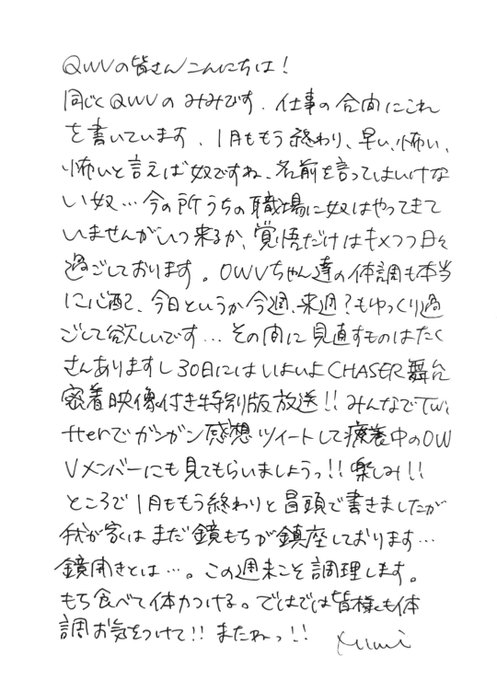 QWVの皆さんこんにちは！
同じくQWVのみみです．仕事の合間にこれ
を書いています．1月ももう終わり、早い、怖い、
怖いと言えば奴ですね、名前を言ってはいけな
い奴…今の所うちの職場に奴はやってきて
いませんがいつ来るか、覚悟だけはキメつつ日々
過ごしております。OWVちゃん達の体調も本当
に心配、今日というか今週、来週？もゆっくり過
ごして欲しいです…その間に見直すものはたく
さんありますし30日にはいよいよCHASER舞台
密着映像付き特別版放送!!みんなでTwi
tterでガンガン感想ツイートして療養中のOW
Vメンバーにも見てもらいましょうっ!!楽しみ!!
ところで1月ももう終わりと冒頭で書きましたが
我が家はまだ鏡もちが鎮座しております…
鏡開きとは…。この週末こそ調理します。
もち食べて体力つける。ではでは皆様も体
調お気をつけて!!またねっ!!